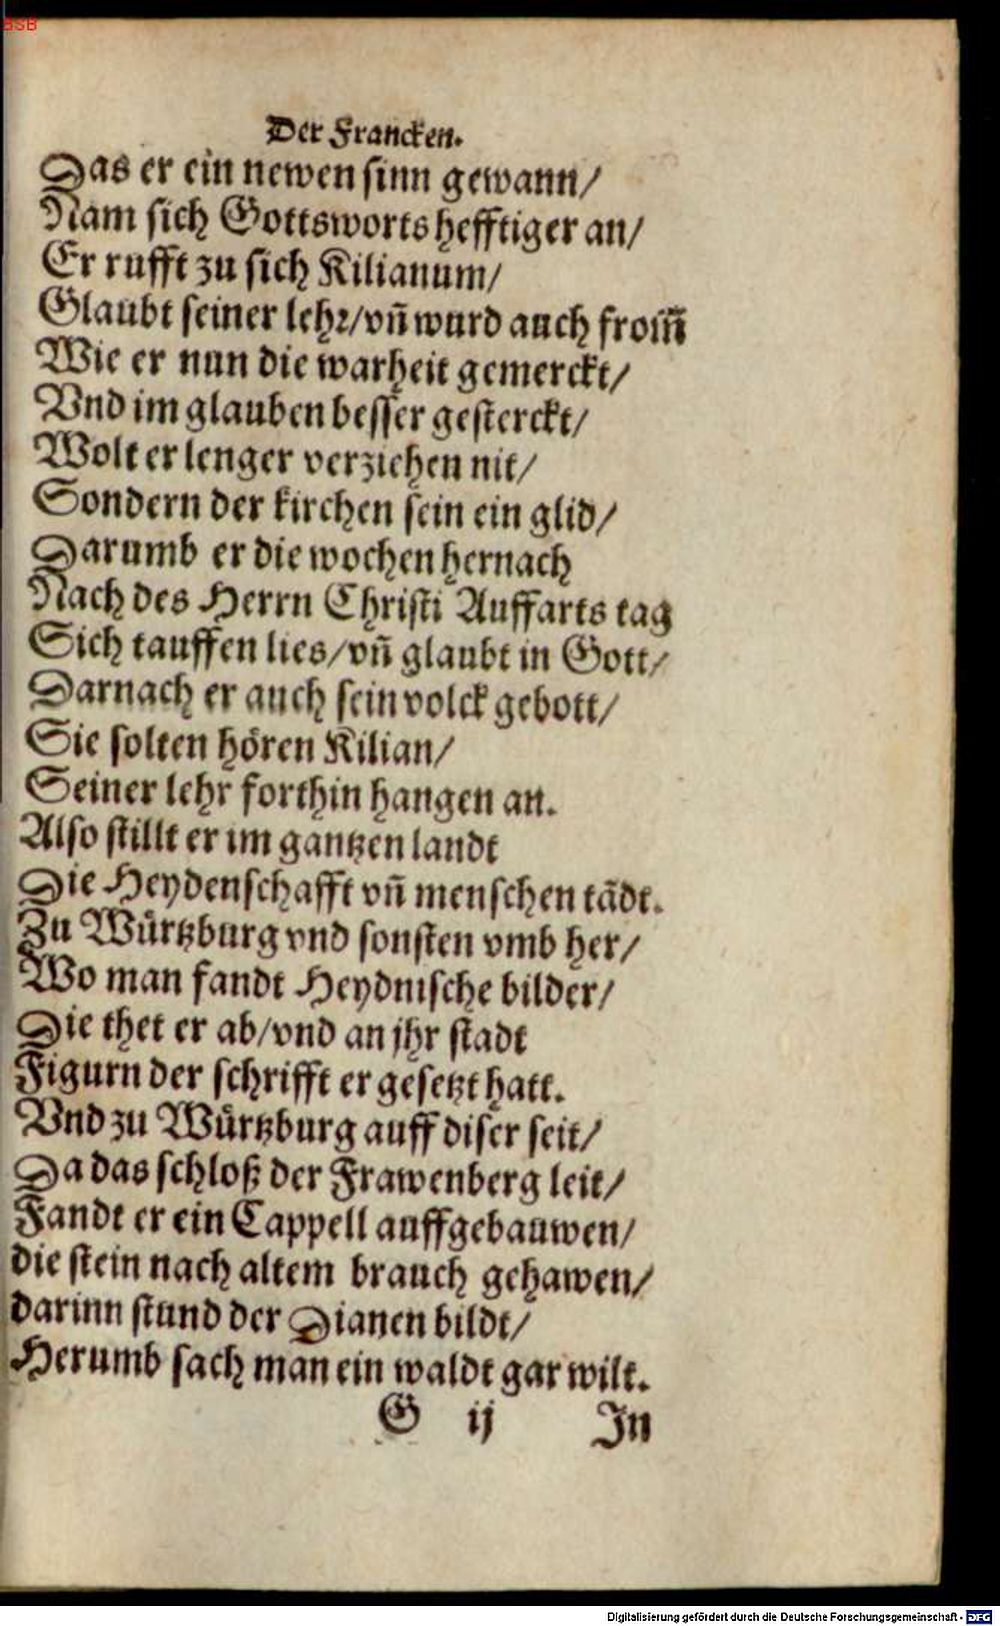 BSB
Der Francken.
Das er ein newen sinn gewann/
Nam sich Gottsworts hefftiger an/
Er rufft zu sich Kilianum/
Glaubt seiner lehr/vn̄ wurd auch from̄
Wie er nun die warheit gemerckt/
Vnd im glauben besser gesterckt/
Wolt er lenger verziehen nit/
Sondern der kirchen sein ein glid/
Darumb er die wochen hernach
Nach des Herrn Christi Auffarts tag
Sich tauffen lies/vn̄ glaubt in Gott/
Darnach er auch sein volck gebott/
Sie solten hören Kilian/
Seiner lehr forthin hangen an.
Also stillt er im gantzen landt
Die Heydenschafft vn̄ menschen tādt.
Zu Würtzburg vnd sonsten vmb her/
Wo man fandt Heydnische bilder/
Die thet er ab/vnd an jhr stadt
Figurn der schrifft er gesetzt hatt.
Vnd zu Würtzburg auff diser seit/
Da das schloß der Frawenberg leit/
Fandt er ein Cappell auffgebauwen/
die stein nach altem brauch gehawen/
darinn stund der Dianen bildt/
Herumb sach man ein waldt gar wilt.
G ij In
Digitalisierung gefördert durch die Deutsche Forschungsgemeinschaft - DFG